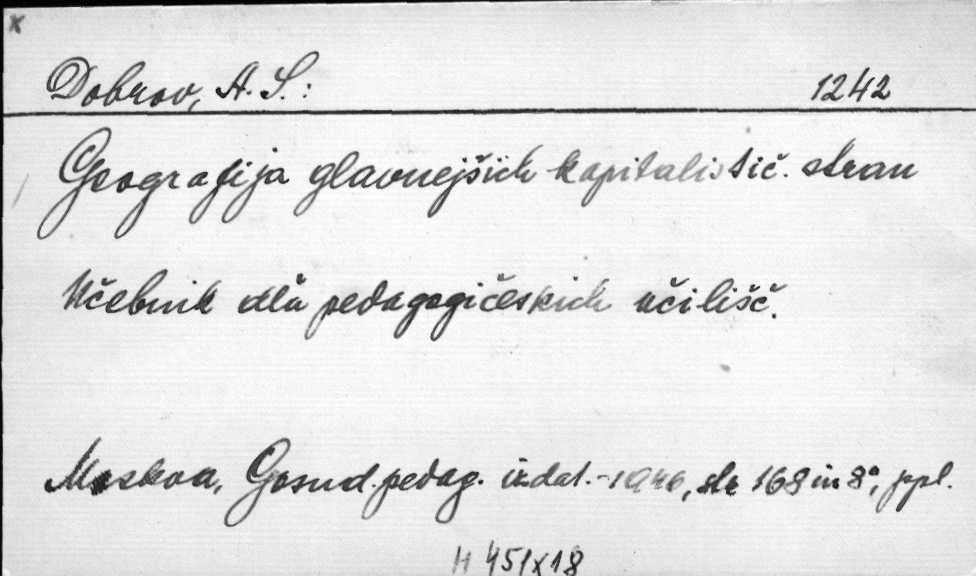 x
Dobrov, A. S.: 1242
Geografija glavnejších kapitalistič. stran
Učebnik dlă pedagogičeskich učilišč.
Moskva, Gosud. pedag. izdat. - 1946, str 168 in 8°, ppl.
H 451x18